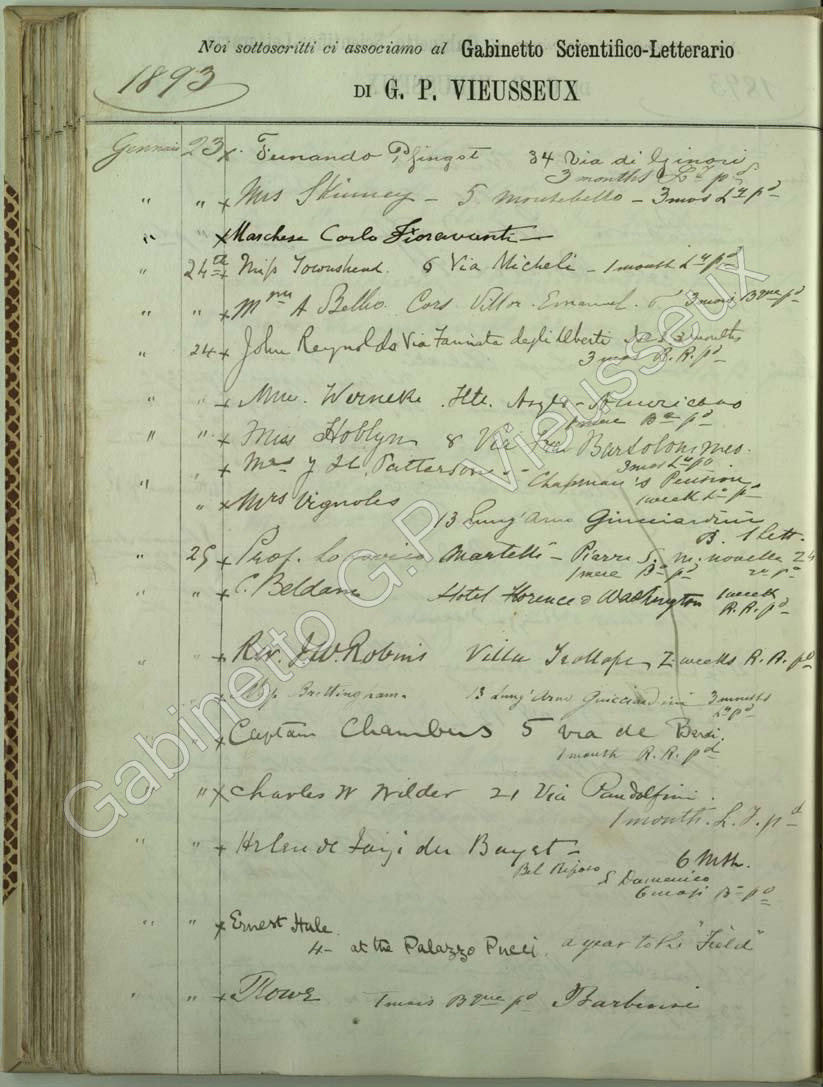 Noi sottoscritti ci associamo al Gabinetto Scientifico-Letterario
1893
DI G. P. VIEUSSEUX
Gennaio 23 x Fernando 34 Via di Ginori
3 months Lr pd
" " x Mrs Skinney - 5 Montebello - 3 mos Lr pd
" " x Marchese Carlo Fioravanti
" 24th x Miss Townshend 6 Via Micheli - 1 month Lr pd
" " x Mme A Cors Vittor. Emanuel. 6 3 mois Bque pd
" 24 x John Reynolds Via Farinata degli Uberti 3 months
3 mos R. R. pd
" " x Mme. Werneke Htl. Anglo-Americano
pd
" " x Miss Hoblyn 8 Via Bartolommeo.
3 mos Lr pd
" " x Mrs Patterson - Chapman's Pension
1 week pd
" x Mrs Vignoles
13 Lung' Arno Guicciardini
B. 1 lett.
" 25 x Prof. Martelli - Piazza S. M. Novella 24
1 mese Bo pd
" " x C. Beldam Hotel Florence & Washington 1 week
R.R. pd
" " x Rev. J.W. Robins Villa Trollope 2 weeks R. R. pd
" " x Miss Brettingham 13 Lung' Arno Guicciardini 3 months
Lr pd
" x Captain Chambers 5 via de Bardi.
1 month R. R. pd
" " x Charles W Wilder 21 Via Pandolfini.
1 month. pd
" " x Helen de
6 Mth.
Bel Riposo
S Domenico
6 mesi pd
" " x Ernest Hale.
4- at the Palazzo Pucci. a year to the "Field"
" " x Rowe 1 mois Bque pd
Gabinetto G.P. Vieusseux